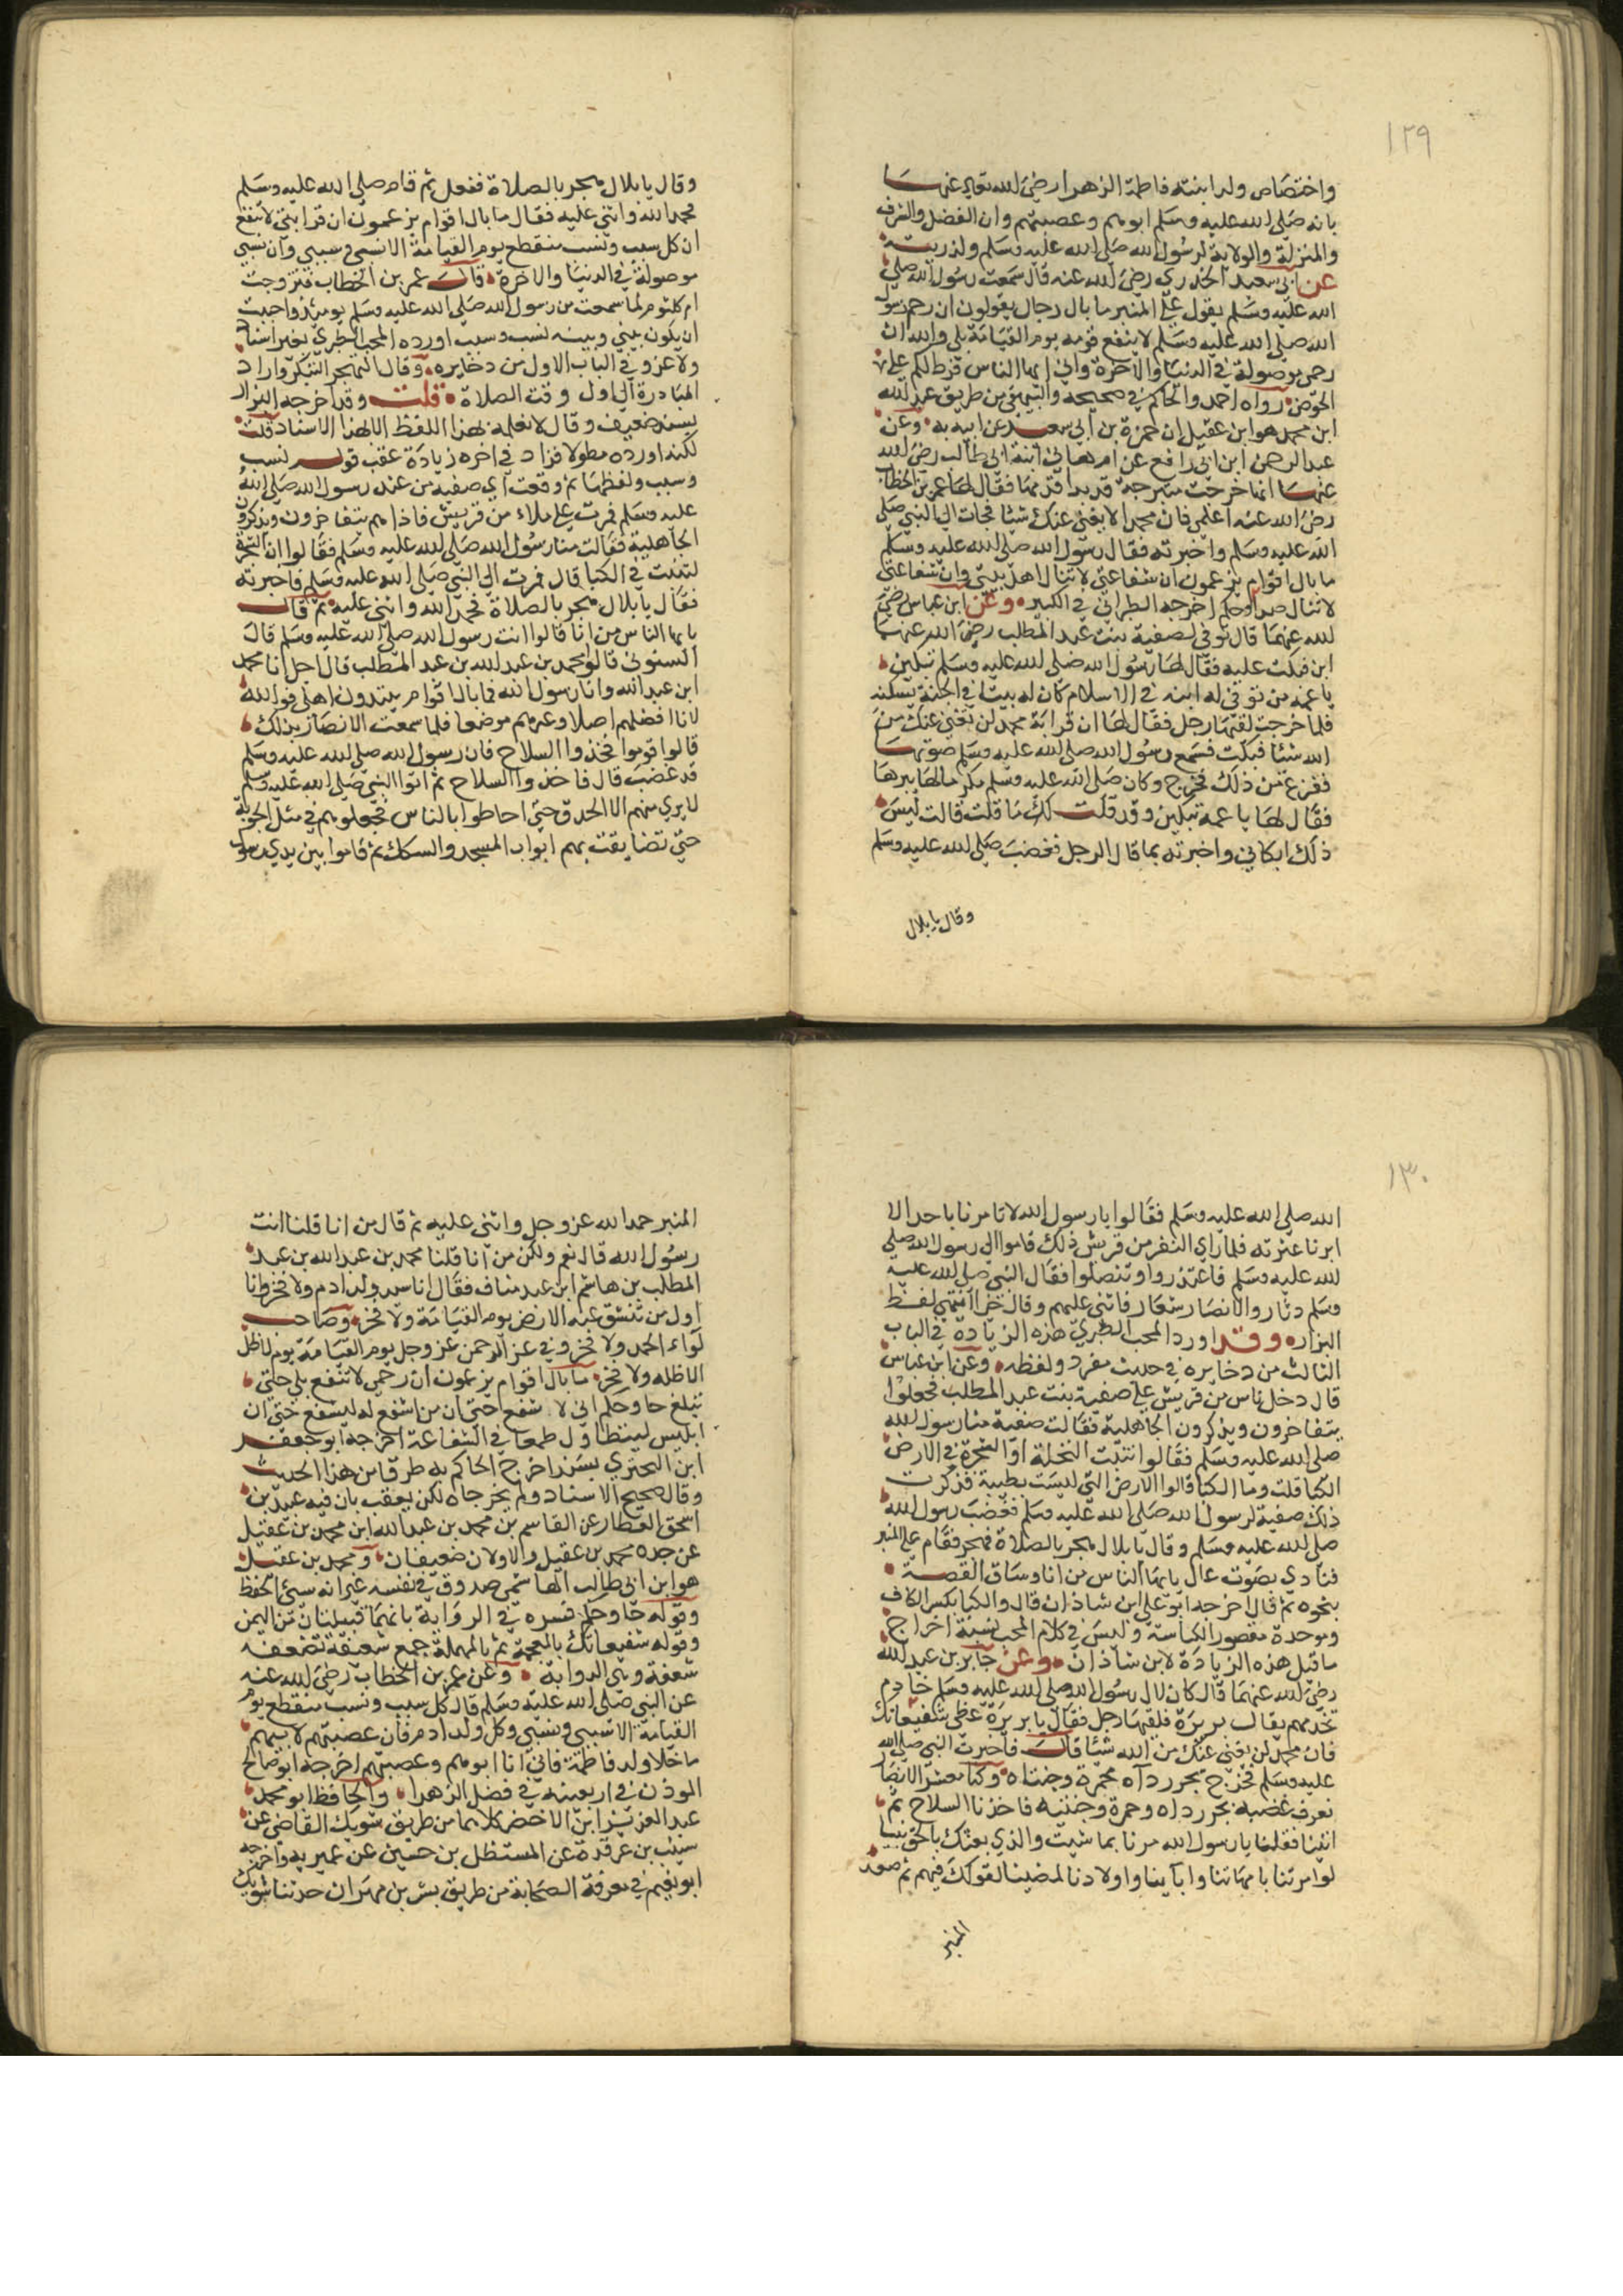 ١٢٩
واختصاص ولد ابنته فاطمة الزهرا رضي الله تعالى عنها
بانه صلى الله عليه وسلم ابوهم وعصبتهم وان الفضل والشرف
والمنزلة والولاية لرسول الله صلى الله عليه وسلم ولذريته
عن ابي سعيد الخدري رضي الله عنه قال سمعت رسول الله صلى
الله عليه وسلم يقول على المنبر ما بال رجال يقولون ان رحم رسول
الله صلى الله عليه وسلم لا ينفع قومه يوم القيامة بلى والله ان
رحمي موصولة في الدنيا والاخرة واني ايها الناس فرط لكم على
الحوض رواه احمد والحاكم في صحيحه والبيهقي من طريق عبد الله
ابن محمد هو ابن عقيل ان حمزة بن ابي سعيد عن ابيه به وعن
عبد الرحمن ابن ابي رافع عن ام هاني ابنة ابي طالب رضي الله
عنها انها خرجت متبرجة قد بدا قرطها فقال لها عمر بن الخطاب
رضي الله عنه اعلمي فان محمدا لا يغني عنك شيئا فجات الى النبي صلى
الله عليه وسلم واخبرته فقال رسول الله صلى الله عليه وسلم
ما بال اقوام يزعمون ان شفاعتي لا تنال اهل بيتي وان شفاعتي
لا تنال صدا وحكم اخرجه الطبراني في الكبير وعن ابن عباس رضي
الله عنهما قال توفي لصفية بنت عبد المطلب رضي الله عنها
ابن فبكت عليه فقال لها رسول الله صلى الله عليه وسلم تبكين
يا عمة من توفي له ابنه في الاسلام كان له بيتا في الجنة يسكنه
فلما خرجت لقيها رجل فقال لها ان قرابة محمد لن تغني عنك من
الله شيئا فبكت فسمع رسول الله صلى الله عليه وسلم صوتها
ففزع من ذلك فخرج وكان صلى الله عليه وسلم مكرما لها يبرها
فقال لها يا عمة تبكين وقد قلت لك ما قلت قالت ليس
ذلك ابكاني واخبرته بما قال الرجل فغضب صلى الله عليه وسلم
وقال يا بلال
وقال يا بلال هجر بالصلاة ففعل ثم قام صلى الله عليه وسلم
فحمد الله واثنى عليه فقال ما بال اقوام يزعمون ان قرابتي لا تنفع
ان كل سبب ونسب منقطع يوم القيامة الا نسبي وسببي وان نسبي
موصولة في الدنيا والاخرة قال عمر بن الخطاب فتزوجت
ام كلثوم لما سمعت من رسول الله صلى الله عليه وسلم يومئذ واحببت
ان يكون بيني وبينه نسب وسبب اورده المحب الطبري بغير اسناد
ولا عزو في الباب الاول من دخايره وقال التهجر التبكر واراد
المبادرة الى اول وقت الصلاة قلت وقد اخرجه البزار
بسند ضعيف وقال لا نعلمه بهذا اللفظ الا بهذا الاسناد قلت
لكنه اورده مطولا فزاد في اخره زيادة عقب قوله نسب
وسبب ولفظها ثم وقعت اي صفية من عند رسول الله صلى الله
عليه وسلم فمرت على ملاء من قريش فاذا هم يتفاخرون ويذكرون
الجاهلية فقالت منا رسول الله صلى الله عليه وسلم فقالوا ان الشجرة
لتنبت في الكبا قال فمرت الى النبي صلى الله عليه وسلم فاخبرته
فقال يا بلال هجر بالصلاة فحمد الله واثنى عليه ثم قال
يا ايها الناس من انا قالوا انت رسول الله صلى الله عليه وسلم قال
انسبوني قالوا محمد بن عبد الله بن عبد المطلب قال اجل انا محمد
ابن عبد الله وانا رسول الله فما بال اقوام يبتدون اهلي فوالله
لانا افضلهم اصلا وعرهم موضعا فلما سمعت الانصار بذلك
قالوا قوموا فخذوا السلاح فان رسول الله صلى الله عليه وسلم
قد غضب قال فاخذوا السلاح ثم اتوا النبي صلى الله عليه وسلم
لا يرى منهم الا الحدق حتى احاطوا بالناس فجعلوهم في مثل الحرة
حتى تضايقت بهم ابواب المسجد والسكك ثم قاموا بين يدي رسول
١٣٠
الله صلى الله عليه وسلم فقالوا يا رسول الله لا تامرنا باحد الا
ابرنا عترته فلما راى النفر من قريش ذلك قاموا الى رسول الله صلى
الله عليه وسلم فاعتذروا وتنصلوا فقال النبي صلى الله عليه
وسلم دثار والانصار شعار فاثنى عليهم وقال خيرا انتهى لفظ
البزار وقد اورد المحب الطبري هذه الزيادة في الباب
الثالث من دخايره في حديث مفرد ولفظه وعن ابن عباس
قال دخل ناس من قريش على صفية بنت عبد المطلب فجعلوا
يتفاخرون ويذكرون الجاهلية فقالت صفية منا رسول الله
صلى الله عليه وسلم فقالوا تنبت النخلة او الشجرة في الارض
الكبا قلت وما الكبا قالوا الارض التي ليست بطيبة فذكرت
ذلك صفية لرسول الله صلى الله عليه وسلم فغضب رسول الله
صلى الله عليه وسلم وقال يا بلال هجر بالصلاة فهجر فقام على المنبر
فنادى بصوت عال يا ايها الناس من انا وساق القصة
بنحوه ثم قال اخرجه ابو علي ابن شاذان قال والكبا بكسر الكاف
وموحدة مقصور الكناسة وليس في كلام المحب نسبة اخراج
ما قبل هذه الزيادة لابن شاذان وعن جابر بن عبد الله
رضي الله عنهما قال كان لال رسول الله صلى الله عليه وسلم خادم
تخدمهم يقال بريرة فلقيها رجل فقال يا بريرة غطي شعيفاتك
فان محمد لن يغني عنك من الله شيئا قال فاخبرت النبي صلى الله
عليه وسلم فخرج يجر رداه محمرة وجنتاه وكنا معشر الانصار
نعرف غضبه بجر رداه وحمرة وجنتيه فاخذنا السلاح ثم
اتينا فقلنا يا رسول الله مرنا بما شيت والذي بعثك بالحق نبيا
لو امرتنا بامهاتنا وابآينا واولادنا لمضينا لقولك فيهم ثم صعد
المنبر
المنبر حمد الله عز وجل واثنى عليه ثم قال من انا قلنا انت
رسول الله قال نعم ولكن من انا قلنا محمد بن عبد الله بن عبد
المطلب بن هاشم ابن عبد مناف فقال انا سيد ولد ادم ولا فخر وانا
اول من تنشق عنه الارض يوم القيامة ولا فخر وصاحب
لواء الحمد ولا فخر وفي عز الرحمن عز وجل يوم القيامة يوم لا ظل
الا ظله ولا فخر ما بال اقوام يزعمون ان رحمي لا تنفع بلى حتى
تبلغ حا وحكم اني لا شفع حتى ان من اشفع له ليشفع حتى ان
ابليس ليتطاول طمعا في الشفاعة اخرجه ابو جعفر
ابن البحتري بسند اخرج الحاكم به طرفا من هذا الحديث
وقال صحيح الاسناد ولم يخرجاه لكن يعقب بان فيه عبيد بن
اسحق العطار عن القاسم بن محمد بن عبد الله ابن محمد بن عقيل
عن جده محمد بن عقيل والاولان ضعيفان ومحمد بن عقيل
هو ابن ابي طالب الهاشمي صدوق في نفسه غير انه سيئ الحفظ
وقوله حا وحكم فسره في الرواية بانهما قبيلتان من اليمن
وقوله شعيفاتك بالمعجمة ثم بالمهملة جمع شعيفة تصغير
شعفة وهي الدوابة وعن عمر بن الخطاب رضي الله عنه
عن النبي صلى الله عليه وسلم قال كل سبب ونسب منقطع يوم
القيامة الا سببي ونسبي وكل ولد ادم فان عصبتهم لابيهم
ما خلا ولد فاطمة فاني انا ابوهم وعصبتهم اخرجه ابو صالح
الموذن في اربعينه في فضل الزهرا والحافظ ابو محمد
عبد العزيز ابن الاخضر كلاهما من طريق شريك القاضي عن
شبيب بن غرقدة عن المستظل بن حسين عن عمر به واخرجه
ابو نعيم في معرفة الصحابة من طريق بشر بن مهران حدثنا شريك